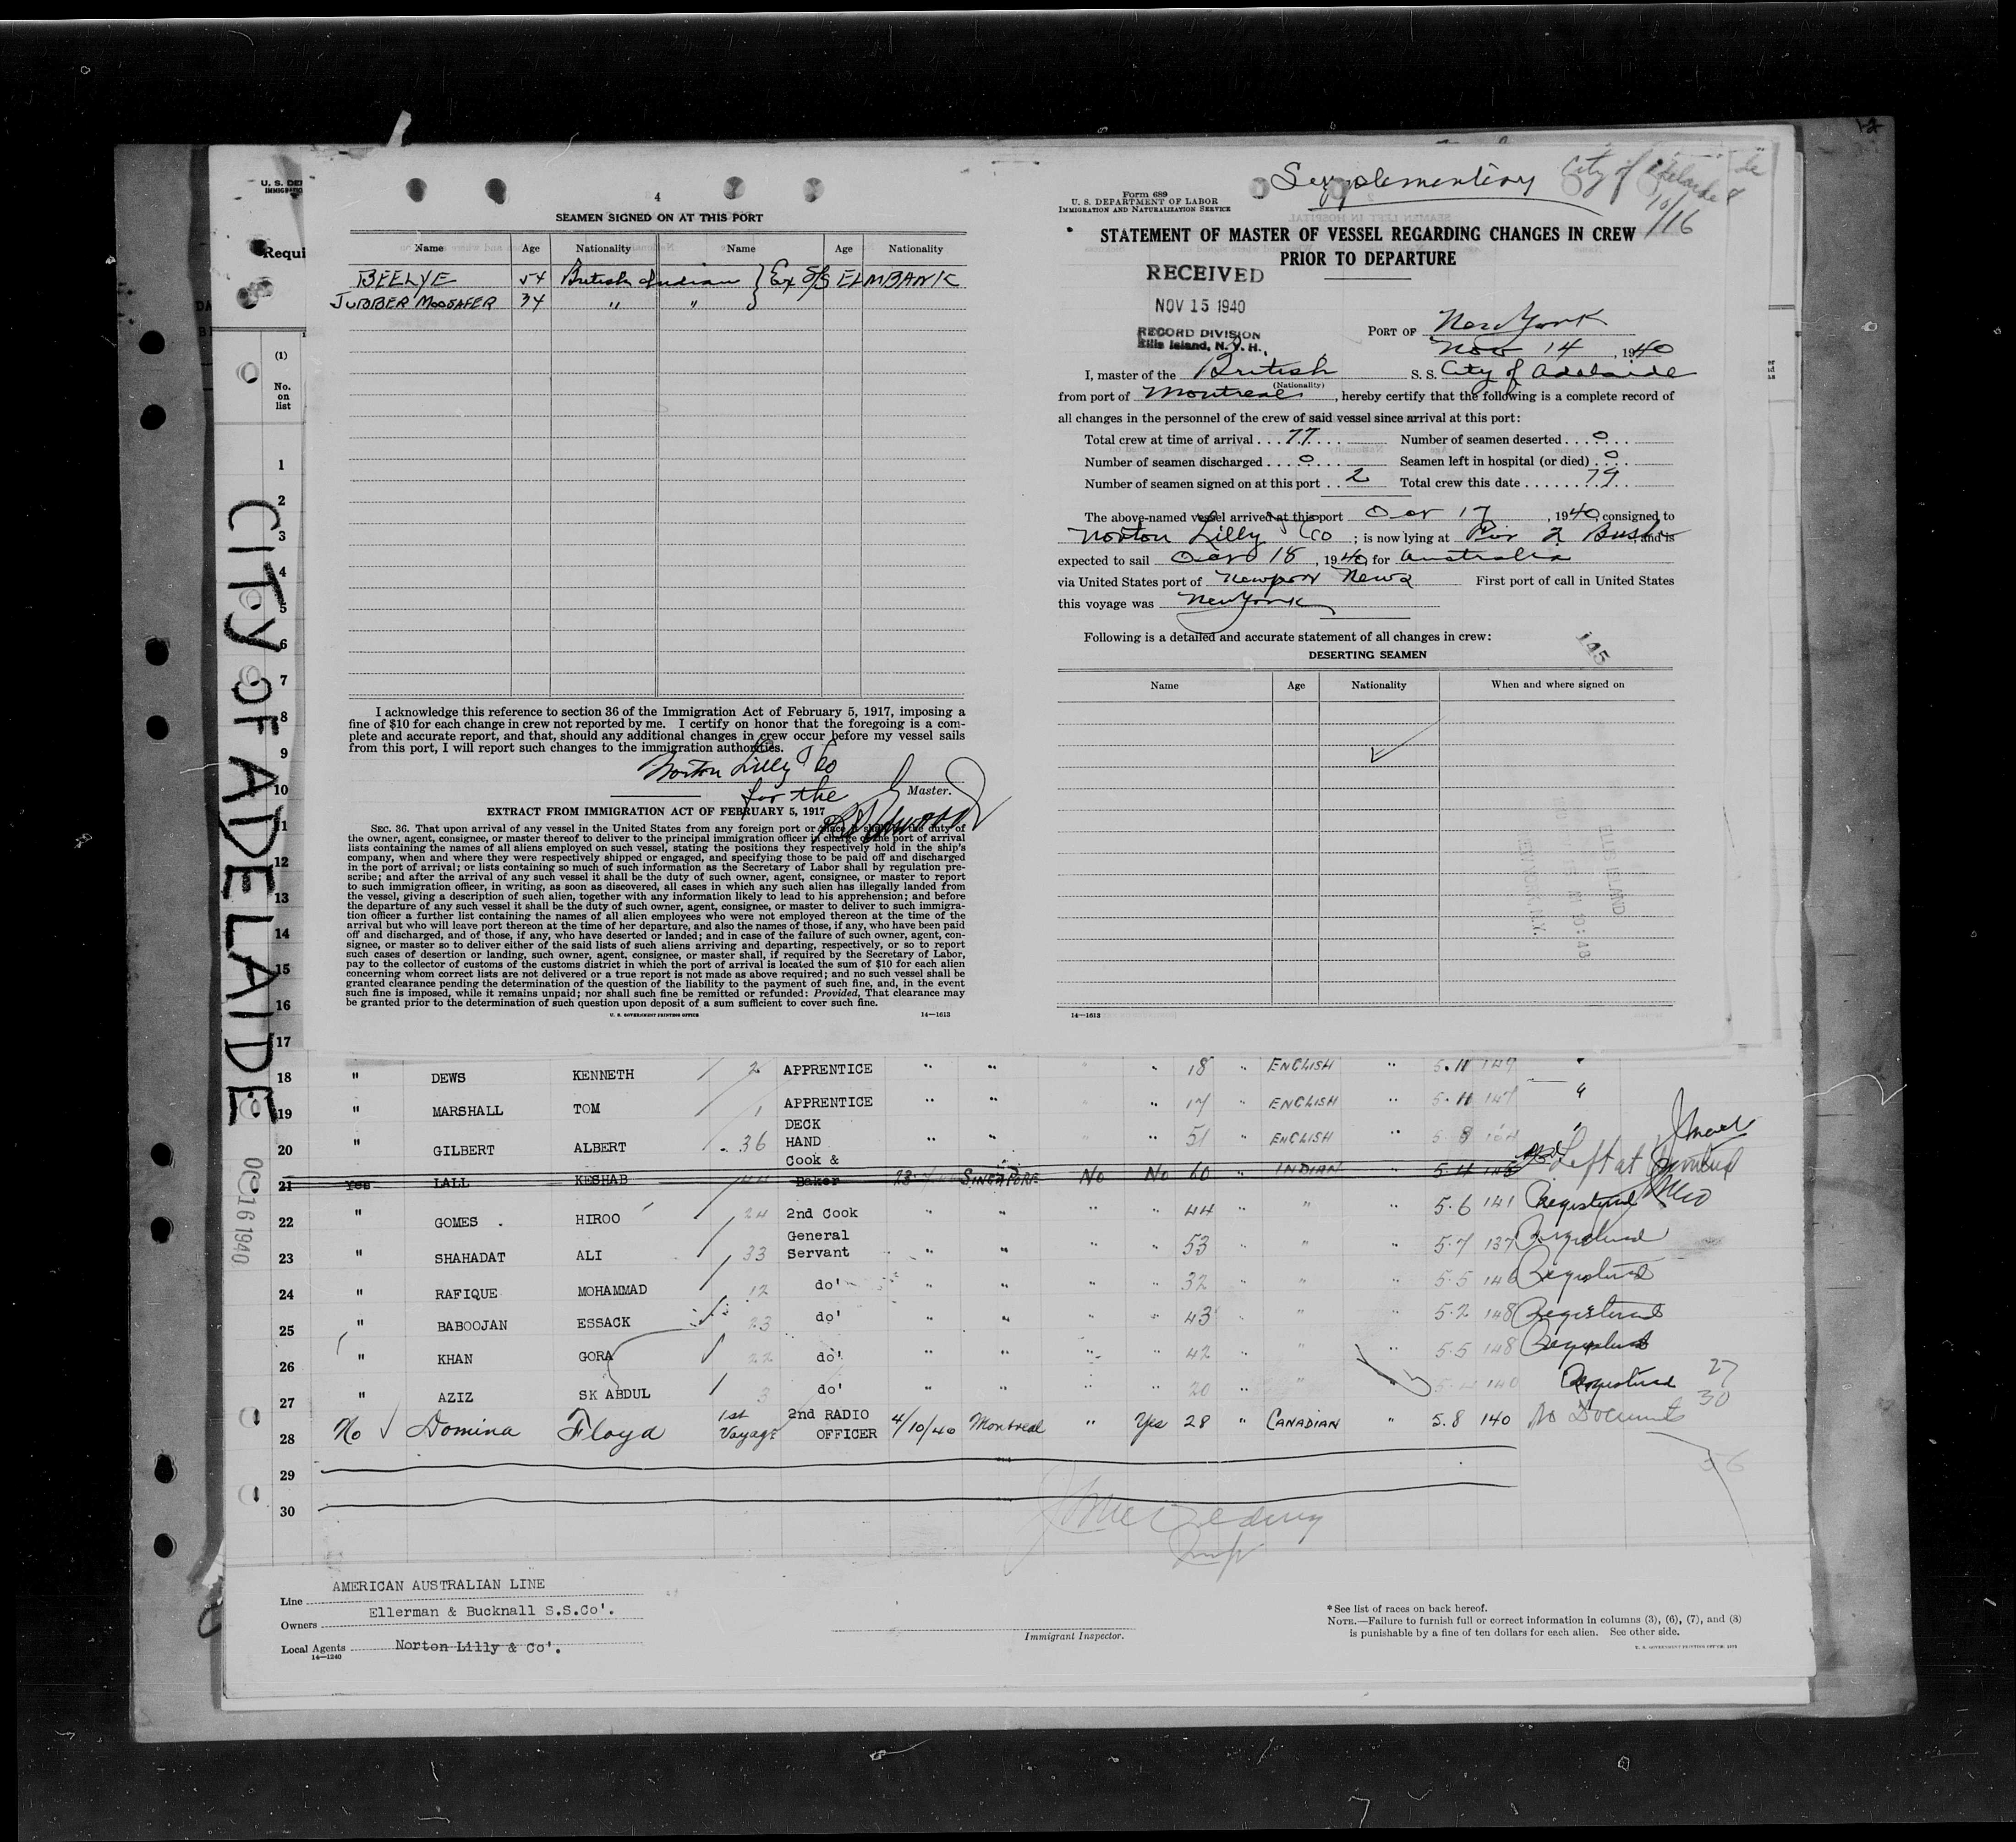 4
SEAMEN SIGNED ON AT THIS PORT
Name Age Nationality Name Age Nationality
BEELYE 54 British Indian } Ex S/S ELMBANK
JUBBER MOOSAFER 34 " "
I acknowledge this reference to section 36 of the Immigration Act of February 5, 1917, imposing a
fine of $10 for each change in crew not reported by me. I certify on honor that the foregoing is a com-
plete and accurate report, and that, should any additional changes in crew occur before my vessel sails
from this port, I will report such changes to the immigration authorities.
Norton Lilly & Co
for the Master.
EXTRACT FROM IMMIGRATION ACT OF FEBRUARY 5, 1917
SEC. 36. That upon arrival of any vessel in the United States from any foreign port or place it shall be the duty of
the owner, agent, consignee, or master thereof to deliver to the principal immigration officer in charge of the port of arrival
lists containing the names of all aliens employed on such vessel, stating the positions they respectively hold in the ship's
company, when and where they were respectively shipped or engaged, and specifying those to be paid off and discharged
in the port of arrival; or lists containing so much of such information as the Secretary of Labor shall by regulation pre-
scribe; and after the arrival of any such vessel it shall be the duty of such owner, agent, consignee, or master to report
to such immigration officer, in writing, as soon as discovered, all cases in which any such alien has illegally landed from
the vessel, giving a description of such alien, together with any information likely to lead to his apprehension; and before
the departure of any such vessel it shall be the duty of such owner, agent, consignee, or master to deliver to such immigra-
tion officer a further list containing the names of all alien employees who were not employed thereon at the time of the
arrival but who will leave port thereon at the time of her departure, and also the names of those, if any, who have been paid
off and discharged, and of those, if any, who have deserted or landed; and in case of the failure of such owner, agent, con-
signee, or master so to deliver either of the said lists of such aliens arriving and departing, respectively, or so to report
such cases of desertion or landing, such owner, agent, consignee, or master shall, if required by the Secretary of Labor,
pay to the collector of customs of the customs district in which the port of arrival is located the sum of $10 for each alien
concerning whom correct lists are not delivered or a true report is not made as above required; and no such vessel shall be
granted clearance pending the determination of the question of the liability to the payment of such fine, and, in the event
such fine is imposed, while it remains unpaid; nor shall such fine be remitted or refunded: Provided, That clearance may
be granted prior to the determination of such question upon deposit of a sum sufficient to cover such fine.
U. S. GOVERNMENT PRINTING OFFICE 14—1613
Supplementary City of Adelaide
10/16
Form 689
U. S. DEPARTMENT OF LABOR
IMMIGRATION AND NATURALIZATION SERVICE
STATEMENT OF MASTER OF VESSEL REGARDING CHANGES IN CREW
PRIOR TO DEPARTURE
RECEIVED
NOV 15 1940
RECORD DIVISION
Ellis Island, N. Y. H.
PORT OF New York
Nov 14, 1940
I, master of the British S. S. City of Adelaide
(Nationality)
from port of Montreal, hereby certify that the following is a complete record of
all changes in the personnel of the crew of said vessel since arrival at this port:
Total crew at time of arrival ... 77 Number of seamen deserted .... 0
Number of seamen discharged .... 0 Seamen left in hospital (or died) 0
Number of seamen signed on at this port .. 2 Total crew this date ........ 79
The above-named vessel arrived at this port 17, 1940, consigned to
Norton Lilly & Co; is now lying at Pier 2 Bush, and is
expected to sail 18, 1940, for Australia
via United States port of Newport News First port of call in United States
this voyage was New York
Following is a detailed and accurate statement of all changes in crew:
145
DESERTING SEAMEN
Name Age Nationality When and where signed on
ELLIS ISLAND
NEW YORK, N.Y.
14—1613
U. S. DEP
IMMIGRATIO
Requi
(1)
No.
on
list
1
2
3
4
5
6
7
8
9
10
11
12
13
14
15
16
17
CITY OF ADELAIDE
OCT 16 1940
18 " DEWS KENNETH 2 APPRENTICE " " " 18 " ENGLISH " 5.11 147 "
19 " MARSHALL TOM 1 APPRENTICE " " " 17 " ENGLISH " 5.11 147 "
20 " GILBERT ALBERT 36 DECK HAND " " " 51 " ENGLISH " 5 8 164 "
21 Yes LALL KESHAB 44 Cook & Baker 23 SINGAPORE No No 60 " INDIAN 5.4 Left at Montreal
22 " GOMES HIROO 24 2nd Cook " " " " 44 " " " 5.6 141 Registered
23 " SHAHADAT ALI 33 General Servant " " " " 53 " " " 5.7 137 Registered
24 " RAFIQUE MOHAMMAD 12 do' " " " " 32 " " " 5.5 146 Registered
25 " BABOOJAN ESSACK 23 do' " " " " 43 " " " 5.2 148 Registered
26 " KHAN GORA 22 do' " " " " 42 " " " 5.5 148 Registered
27 " AZIZ SK ABDUL 3 do' " " " " 20 " " " 5.4 140 Registered 27
30
28 No Domina Floyd 1st Voyage 2nd RADIO OFFICER 4/10/40 Montreal " Yes 28 " CANADIAN " 5.8 140 No Documents
29
30
56
Line AMERICAN AUSTRALIAN LINE
Owners Ellerman & Bucknall S.S.Co'.
Local Agents Norton Lilly & Co'.
14—1240
Immigrant Inspector.
* See list of races on back hereof.
NOTE.—Failure to furnish full or correct information in columns (3), (6), (7), and (8)
is punishable by a fine of ten dollars for each alien. See other side.